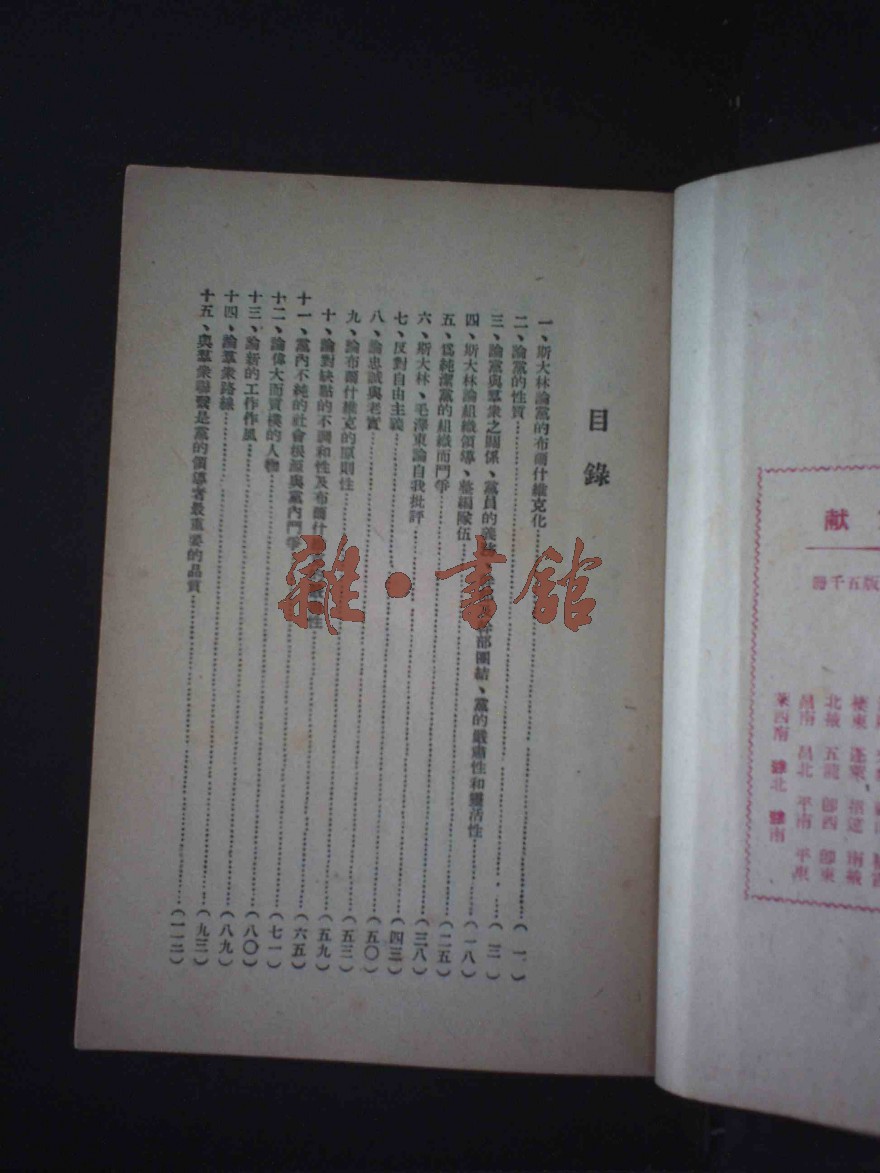 目錄
一、斯大林論黨的布爾什維克化……(一)
二、論黨的性質……(三)
三、論黨與羣衆之關係、黨員的義務、幹部團結、黨的嚴肅性和靈活性……(一八)
四、斯大林論組織領導、整編隊伍……(二五)
五、爲純潔黨的組織而鬥爭……(三八)
六、斯大林、毛澤東論自我批評……(四三)
七、反對自由主義……(五〇)
八、論忠誠與老實……(五三)
九、論布爾什維克的原則性……(五九)
十、論對缺點的不調和性及布爾什性……(六五)
十一、黨內不純的社會根源與黨內鬥爭……(七一)
十二、論偉大而質樸的人物……(八〇)
十三、論新的工作作風……(八九)
十四、論羣衆路綫……(九三)
十五、與羣衆聯繫是黨的領導者最重要的品質……(一一二)
献
版五千册
棲東 蓬萊 招遠 南掖
北掖 五龍 即西 即東
昌南 昌北 平南 平東
萊西南 濰北 濰南
雜·書館